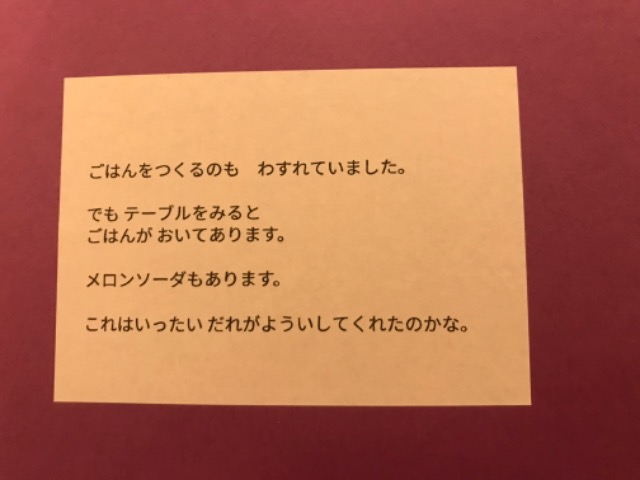 ごはんをつくるのも　わすれていました。
でも テーブルをみると
ごはんが おいてあります。
メロンソーダもあります。
これはいったい だれがよういしてくれたのかな。